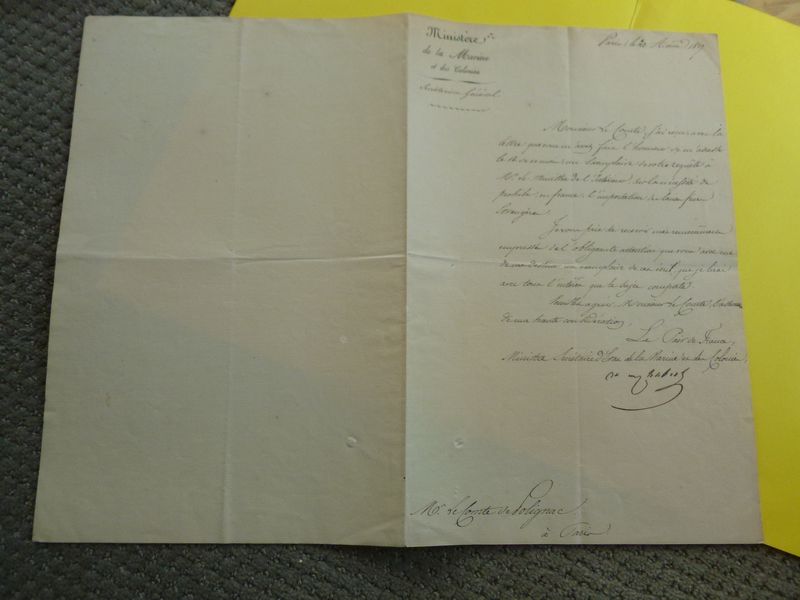 Ministère
de la Marine
et des Colonies
Secrétariat Général
Paris, le
Monsieur le Comte, j'ai reçu, avec la
lettre que vous m'avez fait l'honneur de m'adresser
le de ce mois, un exemplaire de votre requête à
Mr. le Ministre de l'Intérieur, sur la nécessité de
prohiber, en france, l'importation de
étrangère.
Je vous prie de recevoir mes remerciemens
empressés de l'obligeante attention que vous avez eue
de me destiner un exemplaire de cet écrit, que je lirai
avec tout l'intérêt que le sujet comporte.
Veuillez agréer, Monsieur le Comte, l'assurance
de ma haute considération.
Le Pair de France,
Ministre Secrétaire d'Etat de la Marine et des Colonies,
Mr. le Comte de Polignac
à Paris